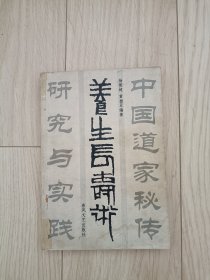 中国道家秘传
养生长寿术
研究与实践